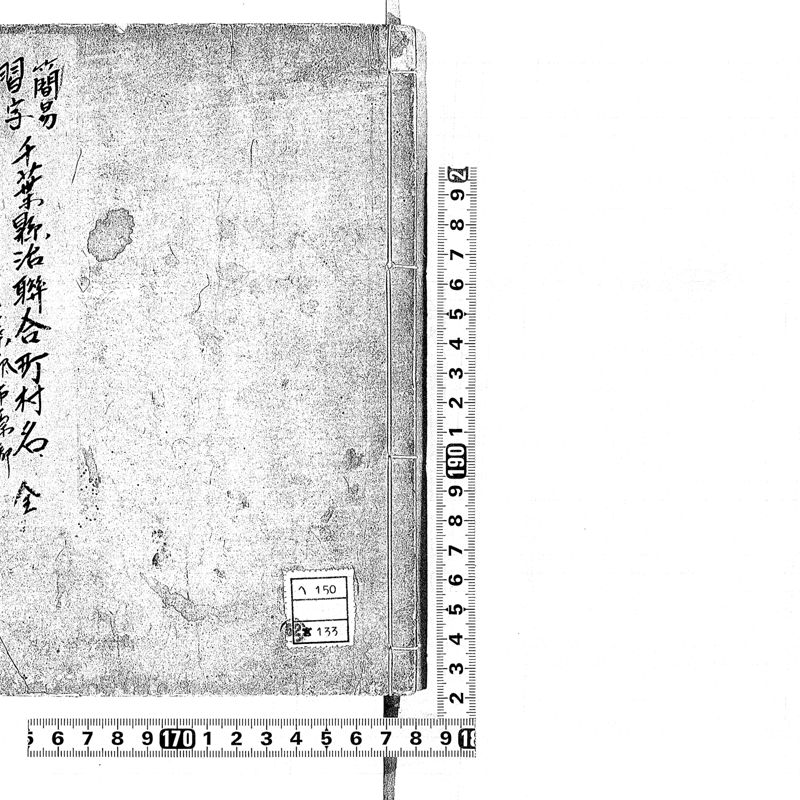 簡易
習字
千葉縣治聯合町村名 全
ヘ 150
133
2
9
8
7
6
5
4
3
2
1
190
9
8
7
6
5
4
3
2
6 7 8 9 170 1 2 3 4 5 6 7 8 9 18